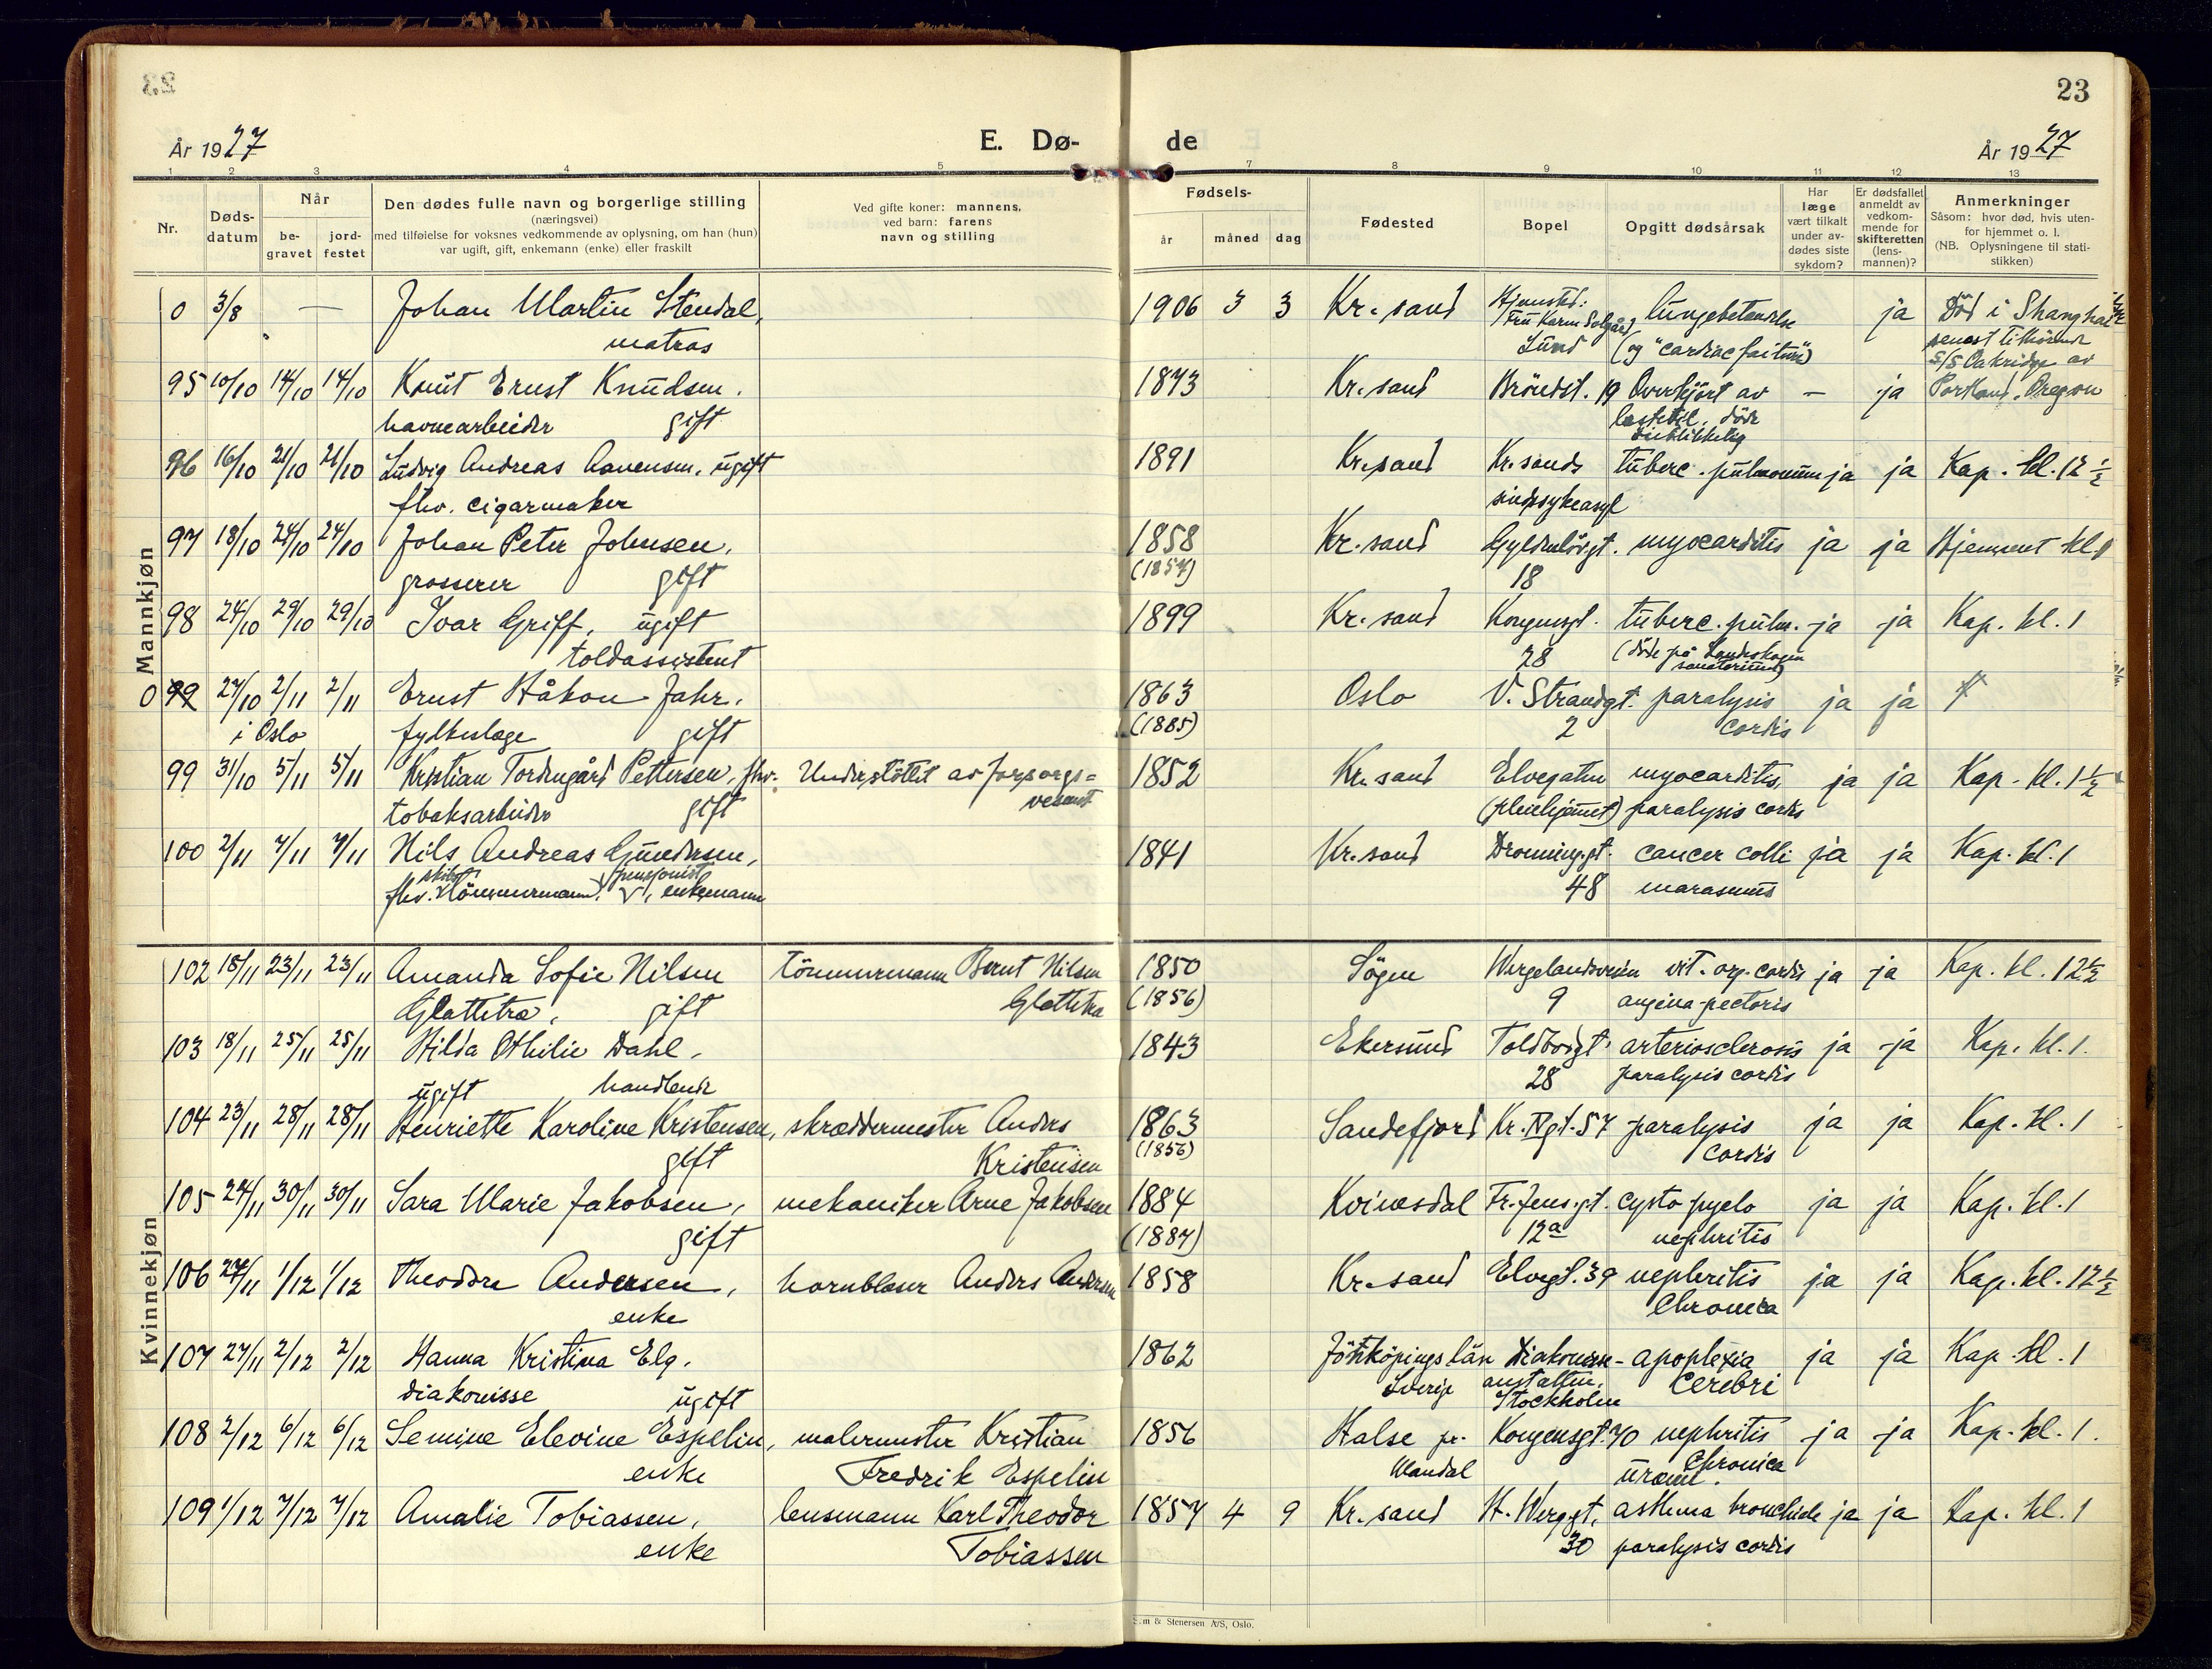 23
År 1927
E. Dø- de
År 1927
1 2 3 4 5 6 7 8 9 10 11 12 13
Nr.
Døds-
datum
Når
be-
gravet
jord-
festet
Den dødes fulle navn og borgerlige stilling
(næringsvei)
med tilføielse for voksnes vedkommende av oplysning, om han (hun)
var ugift, gift, enkemann (enke) eller fraskilt
Ved gifte koner: mannens,
ved barn: farens
navn og stilling
Fødsels-
år måned dag
Fødested
Bopel
Opgitt dødsårsak
Har
læge
vært tilkalt
under av-
dødes siste
sykdom?
Er dødsfallet
anmeldt av
vedkom-
mende for
skifteretten
(lens-
mannen)?
Anmerkninger
Såsom: hvor død, hvis uten-
for hjemmet o. l.
(NB. Oplysningene til stati-
stikken)
Mannkjøn
0 3/8 — Johan Martin Stendal, 1906 3 3 Kr.sand Hjemsted: lungebetændelse ja Död i Shanghai
matros Fru Karen Solgård Lund (og "cardiac failure") senest tilhörende
S/S Oakridge av
Portland, Oregon
95 10/10 14/10 14/10 Knut Ernst Knudsen, 1873 Kr.sand Bröndst. 19 Overkjört av — ja
havnearbeider gift lastebil, döde
öieblikkelig
96 16/10 21/10 21/10 Ludvig Andreas Aanensen, ugift 1891 Kr.sand Kr.sands tuberc. pulmonum ja ja Kap. kl. 12 1/2
fhv. cigarmaker sindssykeasyl
97 18/10 24/10 24/10 Johan Peter Johnsen, 1858 Kr.sand Gyldenlövgt. myocarditis ja ja Hjemmet kl 1
grosserer gift (1857) 18
98 24/10 29/10 29/10 Ivar Griff, ugift 1899 Kr.sand Kongensgt. tuberc. pulm. ja ja Kap. kl. 1
toldassistent 28 (döde på Landeskogen
sanatorium)
0 99 27/10 2/11 2/11 Ernst Håkon Jahr, 1863 Oslo V. Strandgt. paralysis ja ja
i Oslo fylkeslæge gift (1885) 2 cordis
99 31/10 5/11 5/11 Kristian Tordengård Pettersen, fhv. Understöttet av forsorgs= 1852 Kr.sand Elvegaten myocarditis, ja ja Kap. kl. 1 1/2
tobaksarbeider gift vesenet (pleiehjemmet) paralysis cordis
100 2/11 7/11 7/11 Nils Andreas Gundersen, 1841 Kr.sand Dronning.gt. cancer colli ja ja Kap. kl. 1
skibs pensjonist
fhv. tömmermann, enkemann 48 marasmus
Kvinnekjøn
102 18/11 23/11 23/11 Amanda Sofie Nilsen tömmermann Bernt Nilsen 1850 Sögne Wergelandsveien vit. org. cordis ja ja Kap. kl. 12 1/2
Glattetre, gift Glattetre (1856) 9 angina pectoris
103 18/11 25/11 25/11 Hilda Othilie Dahl, 1843 Ekersund Toldbodgt. arteriosclerosis ja ja Kap. kl. 1.
ugift handlende 28 paralysis cordis
104 23/11 28/11 28/11 Henriette Karoline Kristensen, skræddermester Anders 1863 Sandefjord Kr. IVgt. 57 paralysis ja ja Kap. kl. 1
gift Kristensen (1856) cordis
105 24/11 30/11 30/11 Sara Marie Jakobsen, mekaniker Arne Jakobsen 1884 Kvinesdal Fr. Jens.gt. cysto pyelo ja ja Kap. kl. 1
gift (1887) 12a nephritis
106 27/11 1/12 1/12 Theodore Andersen, hornblaser Anders Andersen 1858 Kr.sand Elvegt. 39 nephritis ja ja Kap. kl. 12 1/2
enke Chronica
107 27/11 2/12 2/12 Hanna Kristina Elg, 1862 Jönköpings län Diakonisse- apoplexia ja ja Kap. kl. 1
diakonisse ugift Sverige anstalten, cerebri
Stockholm
108 2/12 6/12 6/12 Semine Elevine Espelin, malermester Kristian 1856 Halse pr. Kongensgt. 70 nephritis ja ja Kap. kl. 1.
enke Fredrik Espelin Mandal Chronica
uræmi.
109 1/12 7/12 7/12 Amalie Tobiassen, lensmann Karl Theodor 1857 4 9 Kr.sand H. Werg.gt. asthma bronchiale ja ja Kap. kl. 1
enke Tobiassen 30 paralysis cordis
& Stenersen A/S, Oslo.